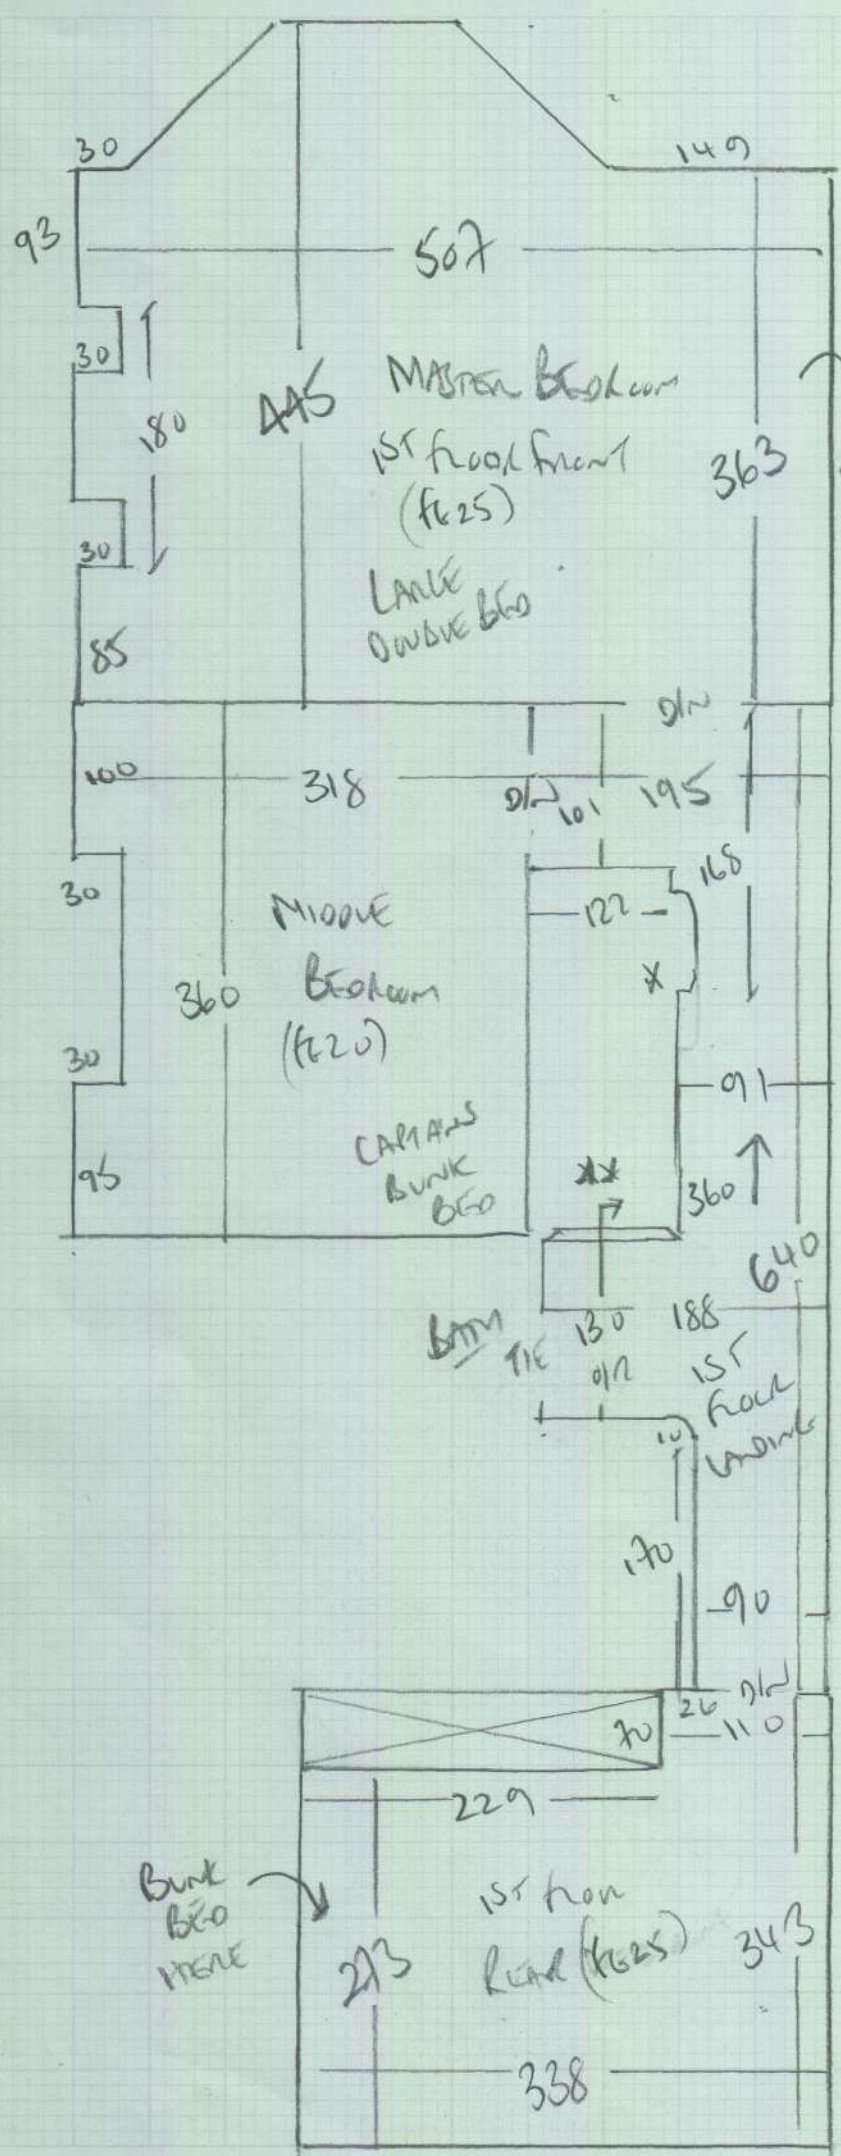 30
149
93
507
30
180
445
MASTER BEDROOM
1ST FLOOR FRONT
363
30
LARGE
DOUBLE BED
85
D/W
100
318
D/W
101
195
168
30
122
MIDDLE
BEDROOM
X
360
30
91
CAPTAINS
BUNK
BED
95
XX
360
640
BATH
130
188
1ST
FLOOR
LANDING
10
170
90
26
D/W
70
110
229
BUNK
BED
HERE
1ST FLOOR
REAR
273
343
338